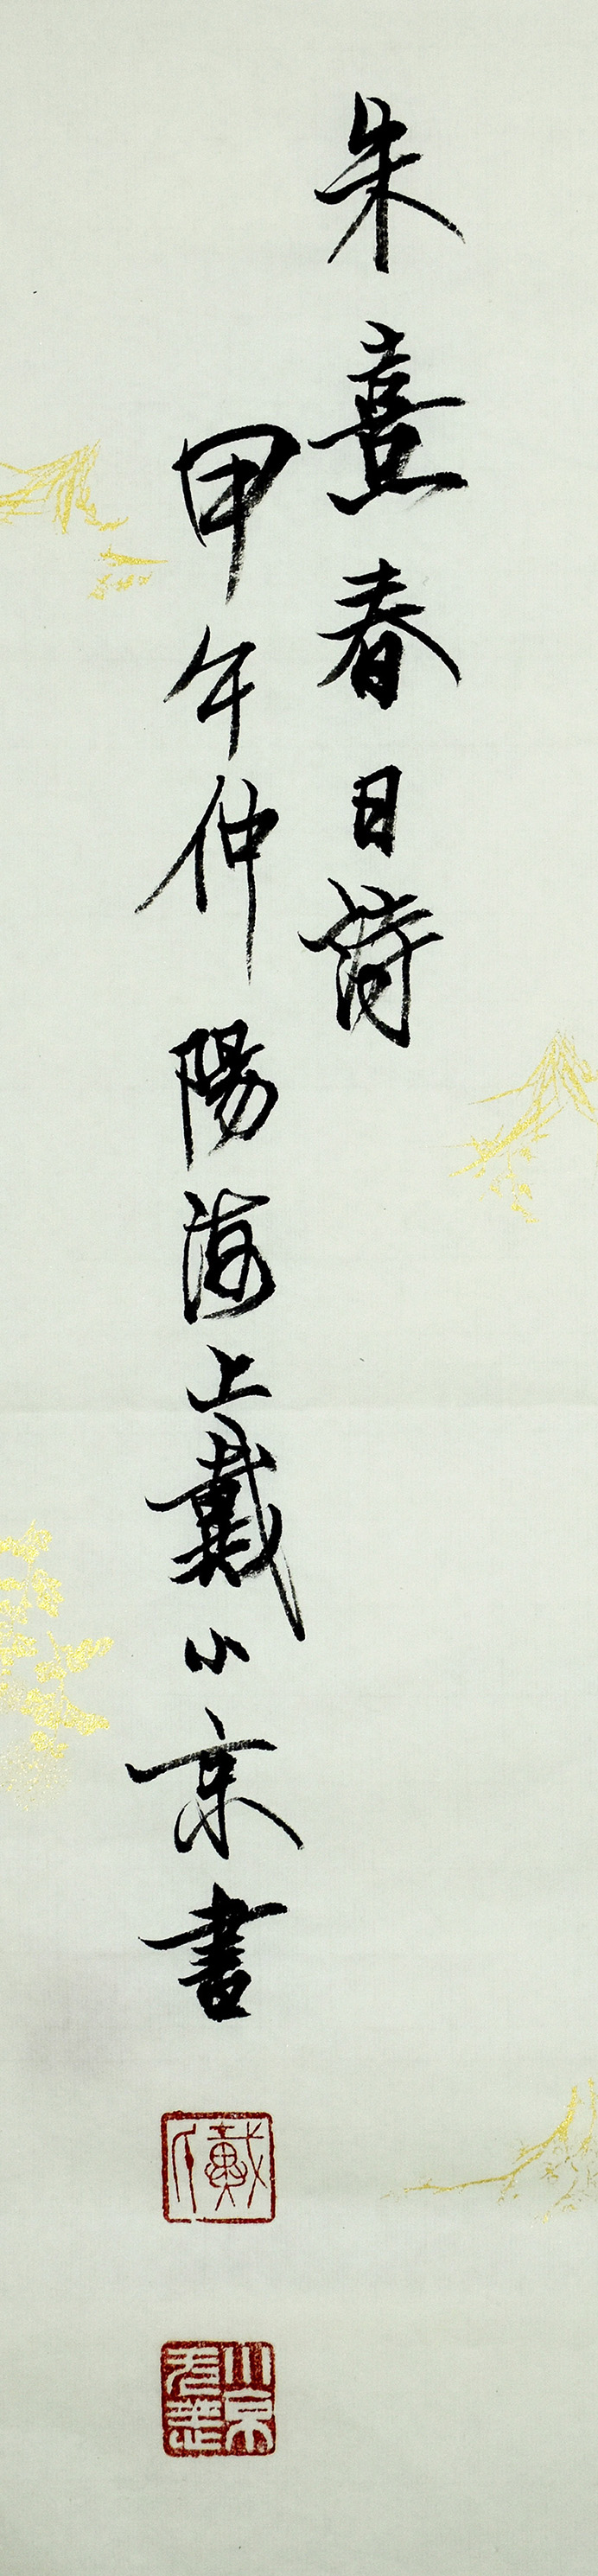 朱熹春日詩
甲午仲陽海上戴小京書
戴氏
小京